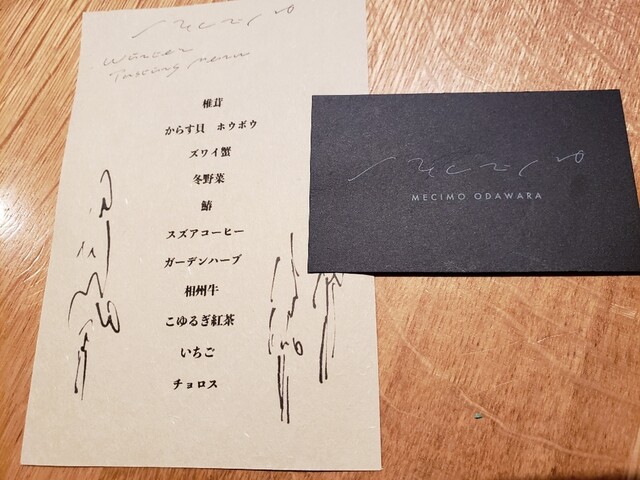 mecimo
Winter
Tasting Menu
椎茸
からす貝　ホウボウ
ズワイ蟹
冬野菜
鰆
スズアコーヒー
ガーデンハーブ
相州牛
こゆるぎ紅茶
いちご
チョロス
mecimo
MECIMO ODAWARA